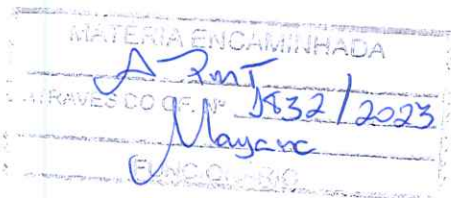 MATERIA ENCAMINHADA
A
ATRAVES DO OF. Nº 1832/2023
Mayanc
FUNCIONARIO